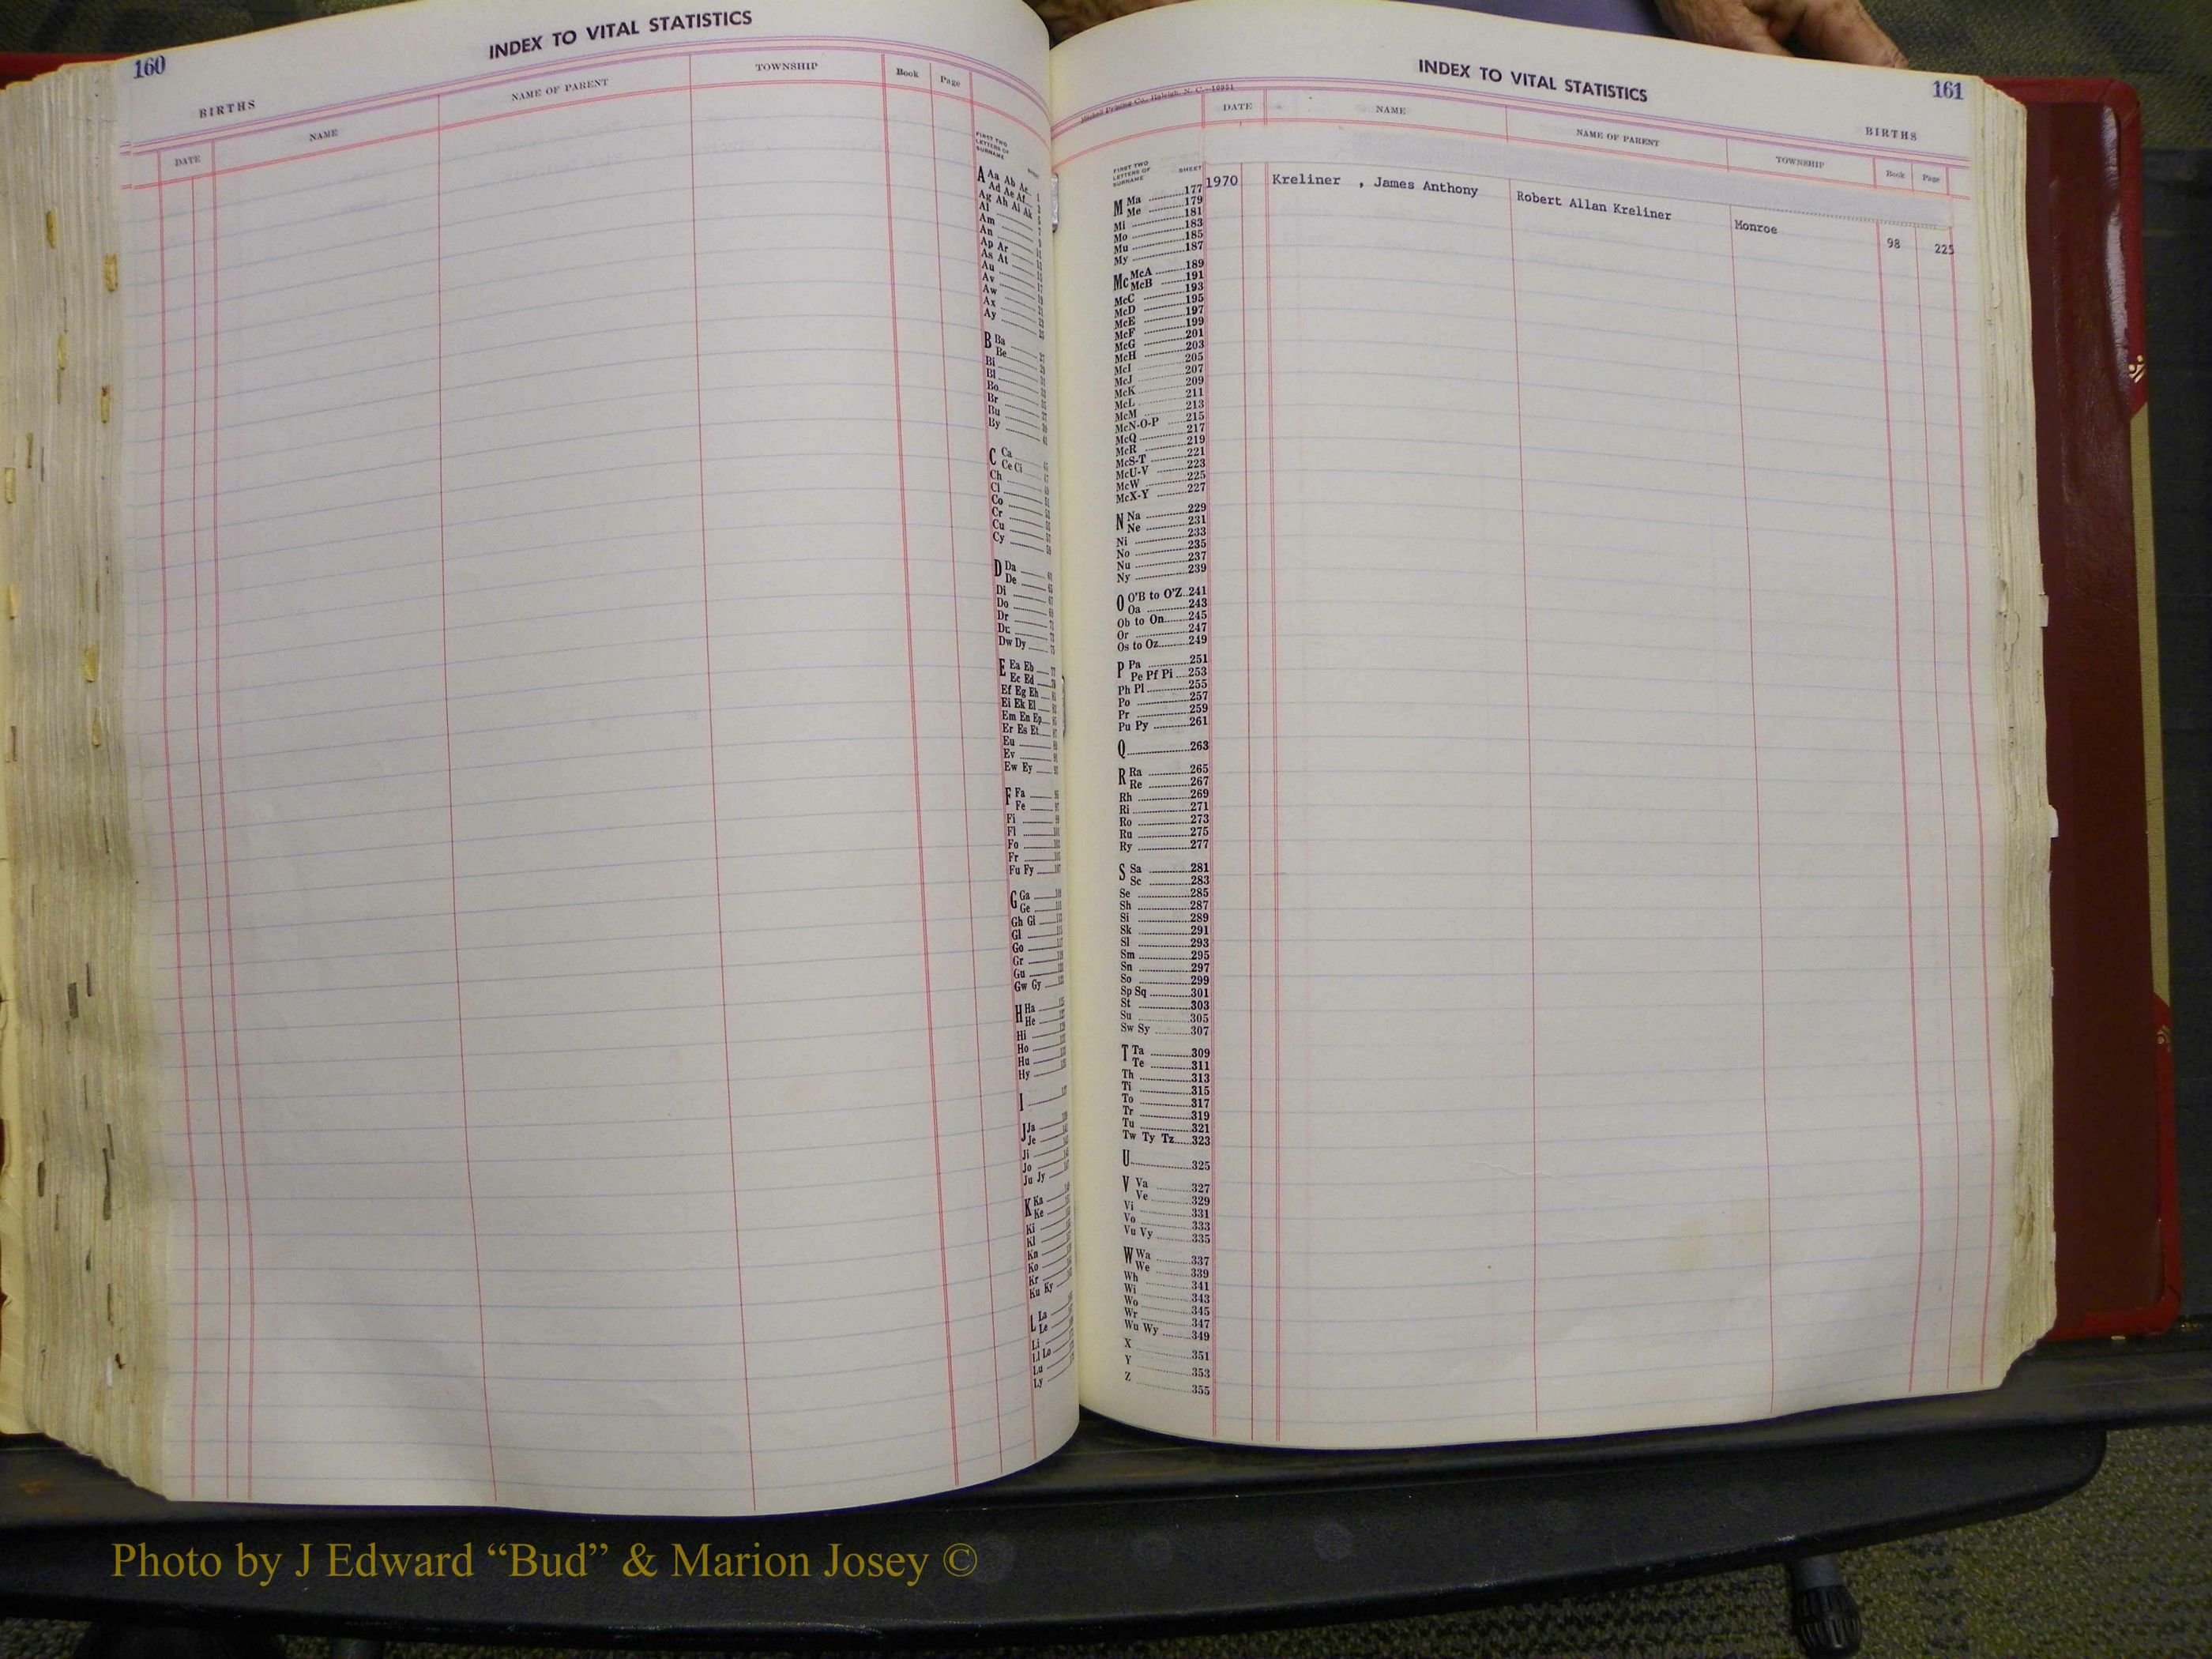 160
INDEX TO VITAL STATISTICS
BIRTHS
DATE
NAME
NAME OF PARENT
TOWNSHIP
Book
Page
FIRST TWO
LETTERS OF
SURNAME
A Aa Ab Ac
Ad Ae Af
Ag Ah Ai Ak
Al
Am
An
Ap Ar
As At
Au
Av
Aw
Ax
Ay
B Ba
Be
Bi
Bl
Bo
Br
Bu
By
C Ca
Ce Ci
Ch
Cl
Co
Cr
Cu
Cy
D Da
De
Di
Do
Dr
Du
Dw Dy
E Ea Eb
Ec Ed
Ef Eg Eh
Ei Ek El
Em En Ep
Er Es Et
Eu
Ev
Ew Ey
F Fa
Fe
Fi
Fl
Fo
Fr
Fu Fy
G Ga
Ge
Gh Gi
Gl
Go
Gr
Gu
Gw Gy
H Ha
He
Hi
Ho
Hu
Hy
I
J Ja
Je
Ji
Jo
Ju Jy
K Ka
Ke
Ki
Kl
Kn
Ko
Kr
Ku Ky
L La
Le
Li
Ll Lo
Lu
Ly
161
INDEX TO VITAL STATISTICS
Mitchell Printing Co., Raleigh, N. C.—10951
BIRTHS
DATE
NAME
NAME OF PARENT
TOWNSHIP
Book
Page
FIRST TWO
LETTERS OF
SURNAME
SHEET
1970 Kreliner , James Anthony Robert Allan Kreliner Monroe 98 225
M Ma 177
Me 179
Mi 181
Mo 183
Mu 185
My 187
Mc McA 189
McB 191
McC 193
McD 195
McE 197
McF 199
McG 201
McH 203
McI 205
McJ 207
McK 209
McL 211
McM 213
McN-O-P 215
McQ 217
McR 219
McS-T 221
McU-V 223
McW 225
McX-Y 227
N Na 229
Ne 231
Ni 233
No 235
Nu 237
Ny 239
O O'B to O'Z 241
Oa 243
Ob to On 245
Or 247
Os to Oz 249
P Pa 251
Pe Pf Pi 253
Ph Pl 255
Po 257
Pr 259
Pu Py 261
Q 263
R Ra 265
Re 267
Rh 269
Ri 271
Ro 273
Ru 275
Ry 277
S Sa 281
Sc 283
Se 285
Sh 287
Si 289
Sk 291
Sl 293
Sm 295
Sn 297
So 299
Sp Sq 301
St 303
Su 305
Sw Sy 307
T Ta 309
Te 311
Th 313
Ti 315
To 317
Tr 319
Tu 321
Tw Ty Tz 323
U 325
V Va 327
Ve 329
Vi 331
Vo 333
Vu Vy 335
W Wa 337
We 339
Wh 341
Wi 343
Wo 345
Wr 347
Wu Wy 349
X 351
Y 353
Z 355
Photo by J Edward “Bud” & Marion Josey ©